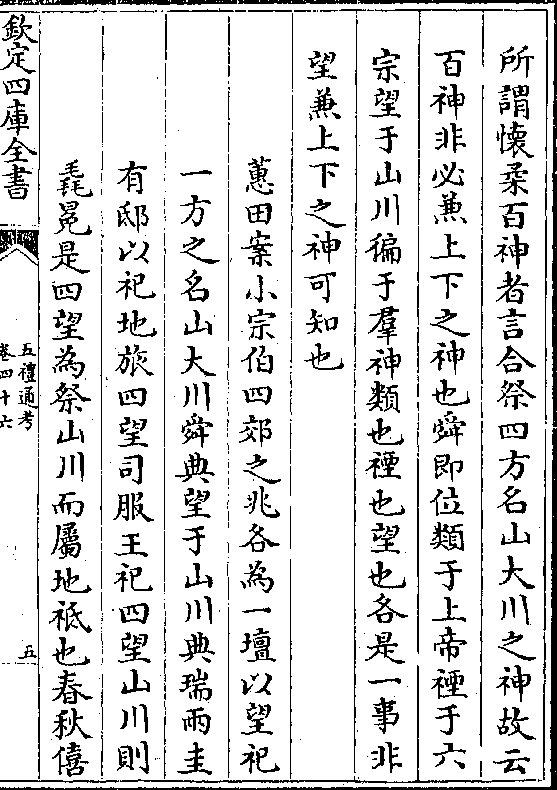 所謂懐柔百神者言合祭四方名山大川之神故云
百神非必兼上下之神也舜即位類于上帝禋于六
宗望于山川徧于羣神類也禋也望也各是一事非
望兼上下之神可知也
蕙田案小宗伯四郊之兆各為一壇以望祀
一方之名山大川舜典望于山川典瑞兩圭
有邸以祀地旅四望司服王祀四望山川則
毳冕是四望為祭山川而屬地祗也春秋僖
欽定四庫全書
五禮通考
卷四十六
五